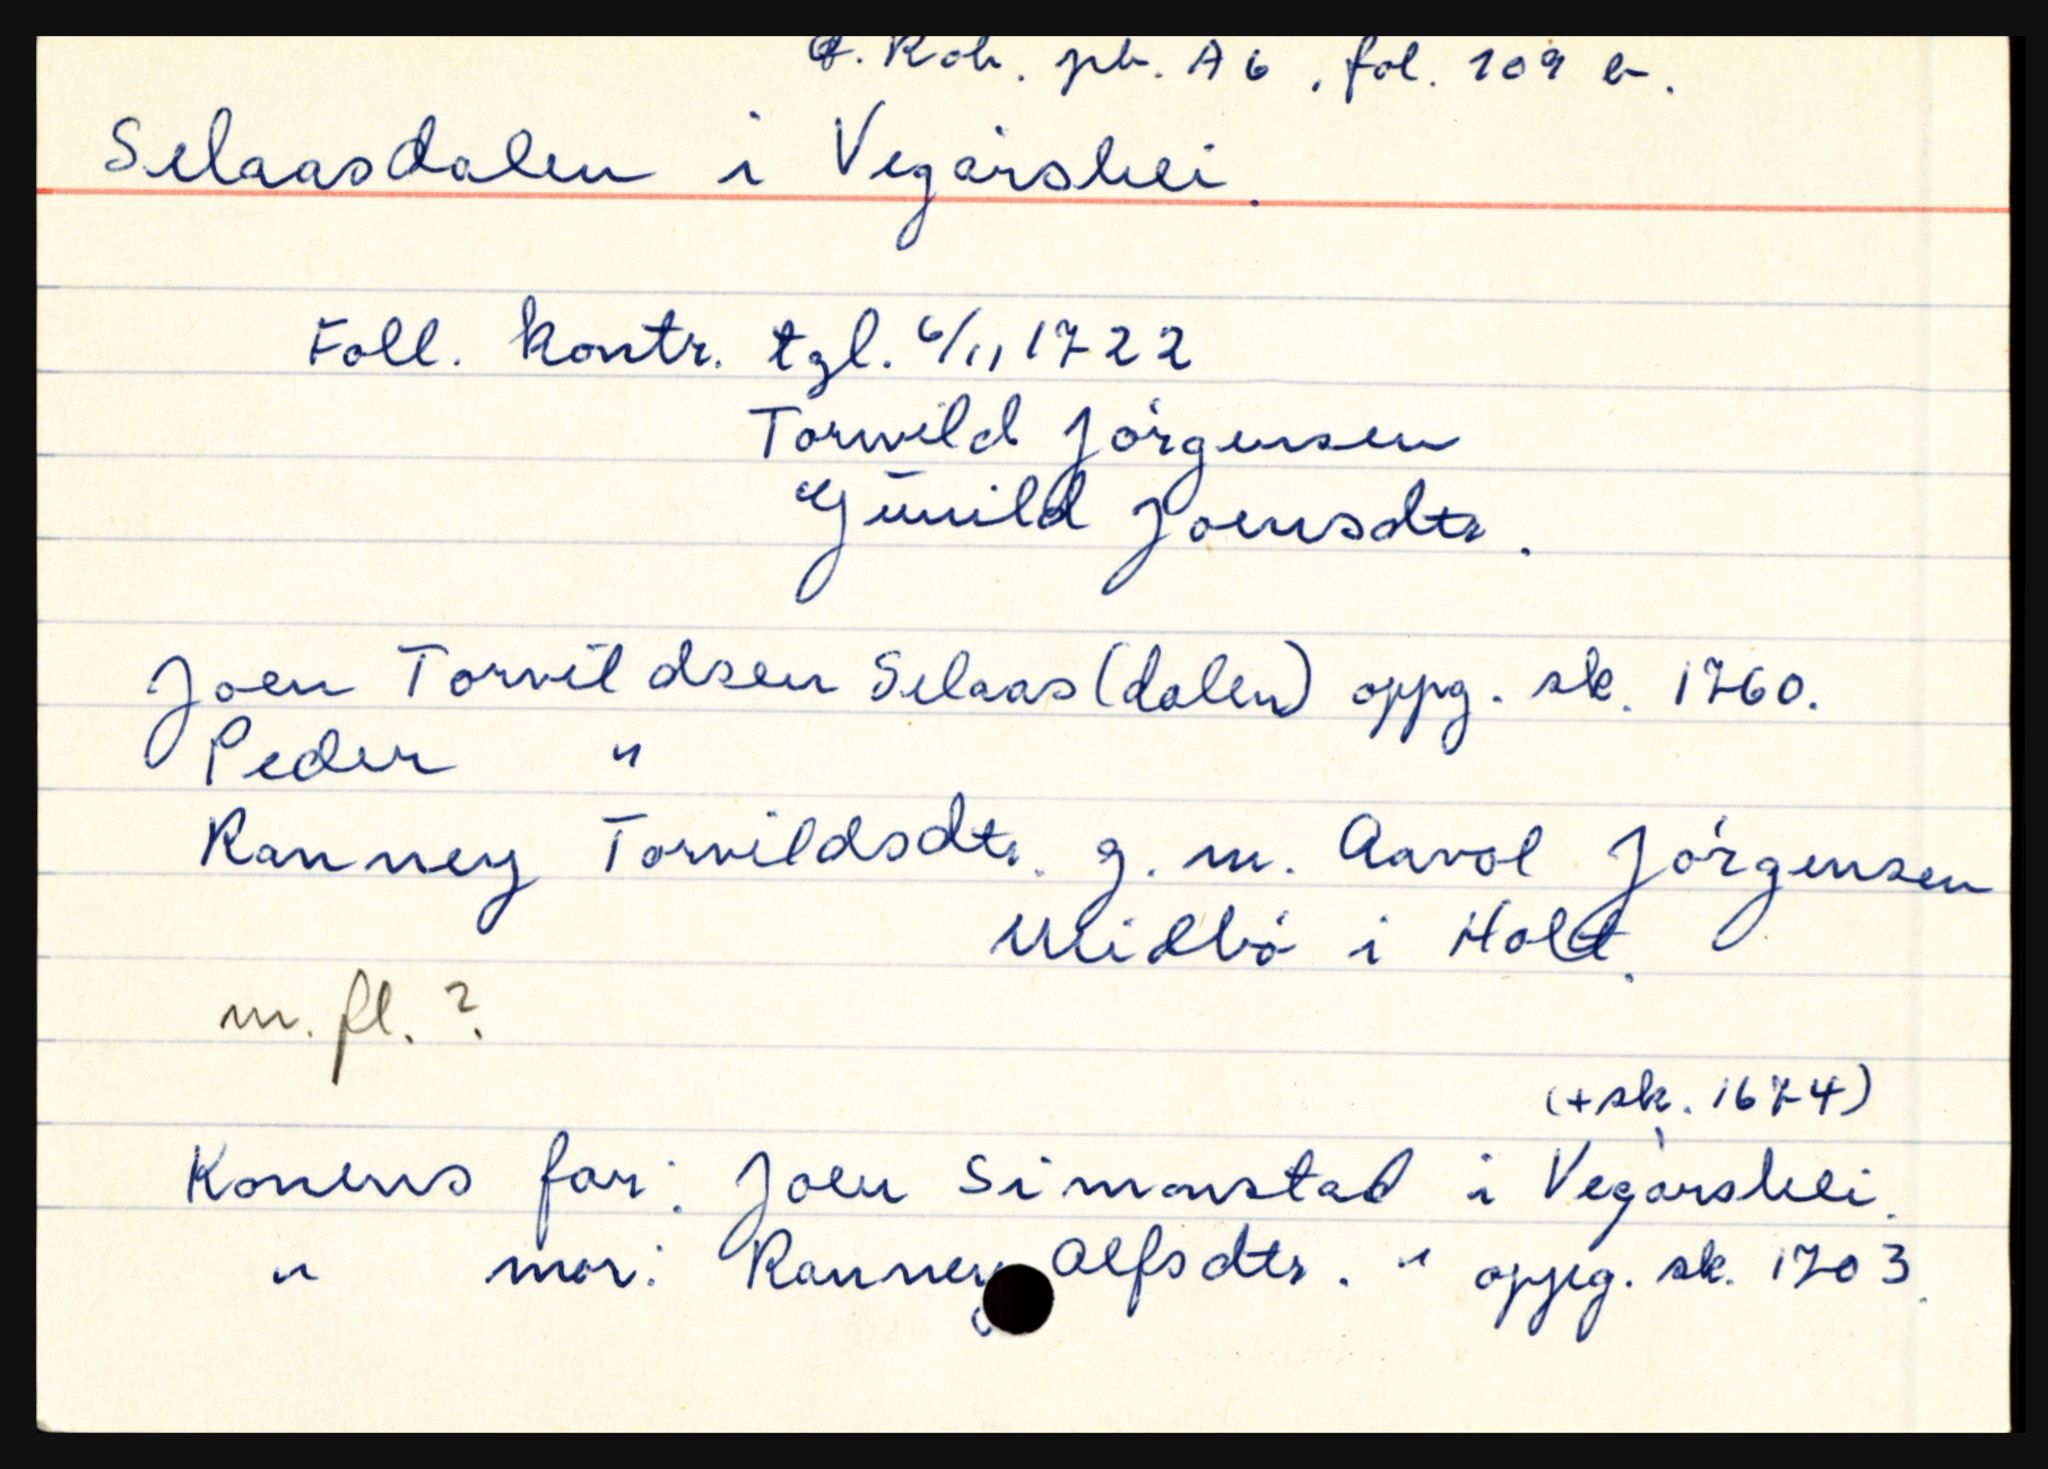 Rob. pb. A 6, fol. 109 b.
Selaasdalen i Vegårshei.
Foll. kontr. tgl. 6/11 1722
Torvild Jörgensen
Gunild Joensdtr.
Joen Torvildsen Selaas (dalen) oppg. sk. 1760.
Peder "
Ranney Torvildsdtr. g. m. Aavol Jörgensen
Midbö i Holt.
m. fl. ?
(+ sk. 1674)
Konens far: Joen Simonstad i Vegårshei.
" mor: Ranney Alfsdtr. " oppg. sk. 1703.